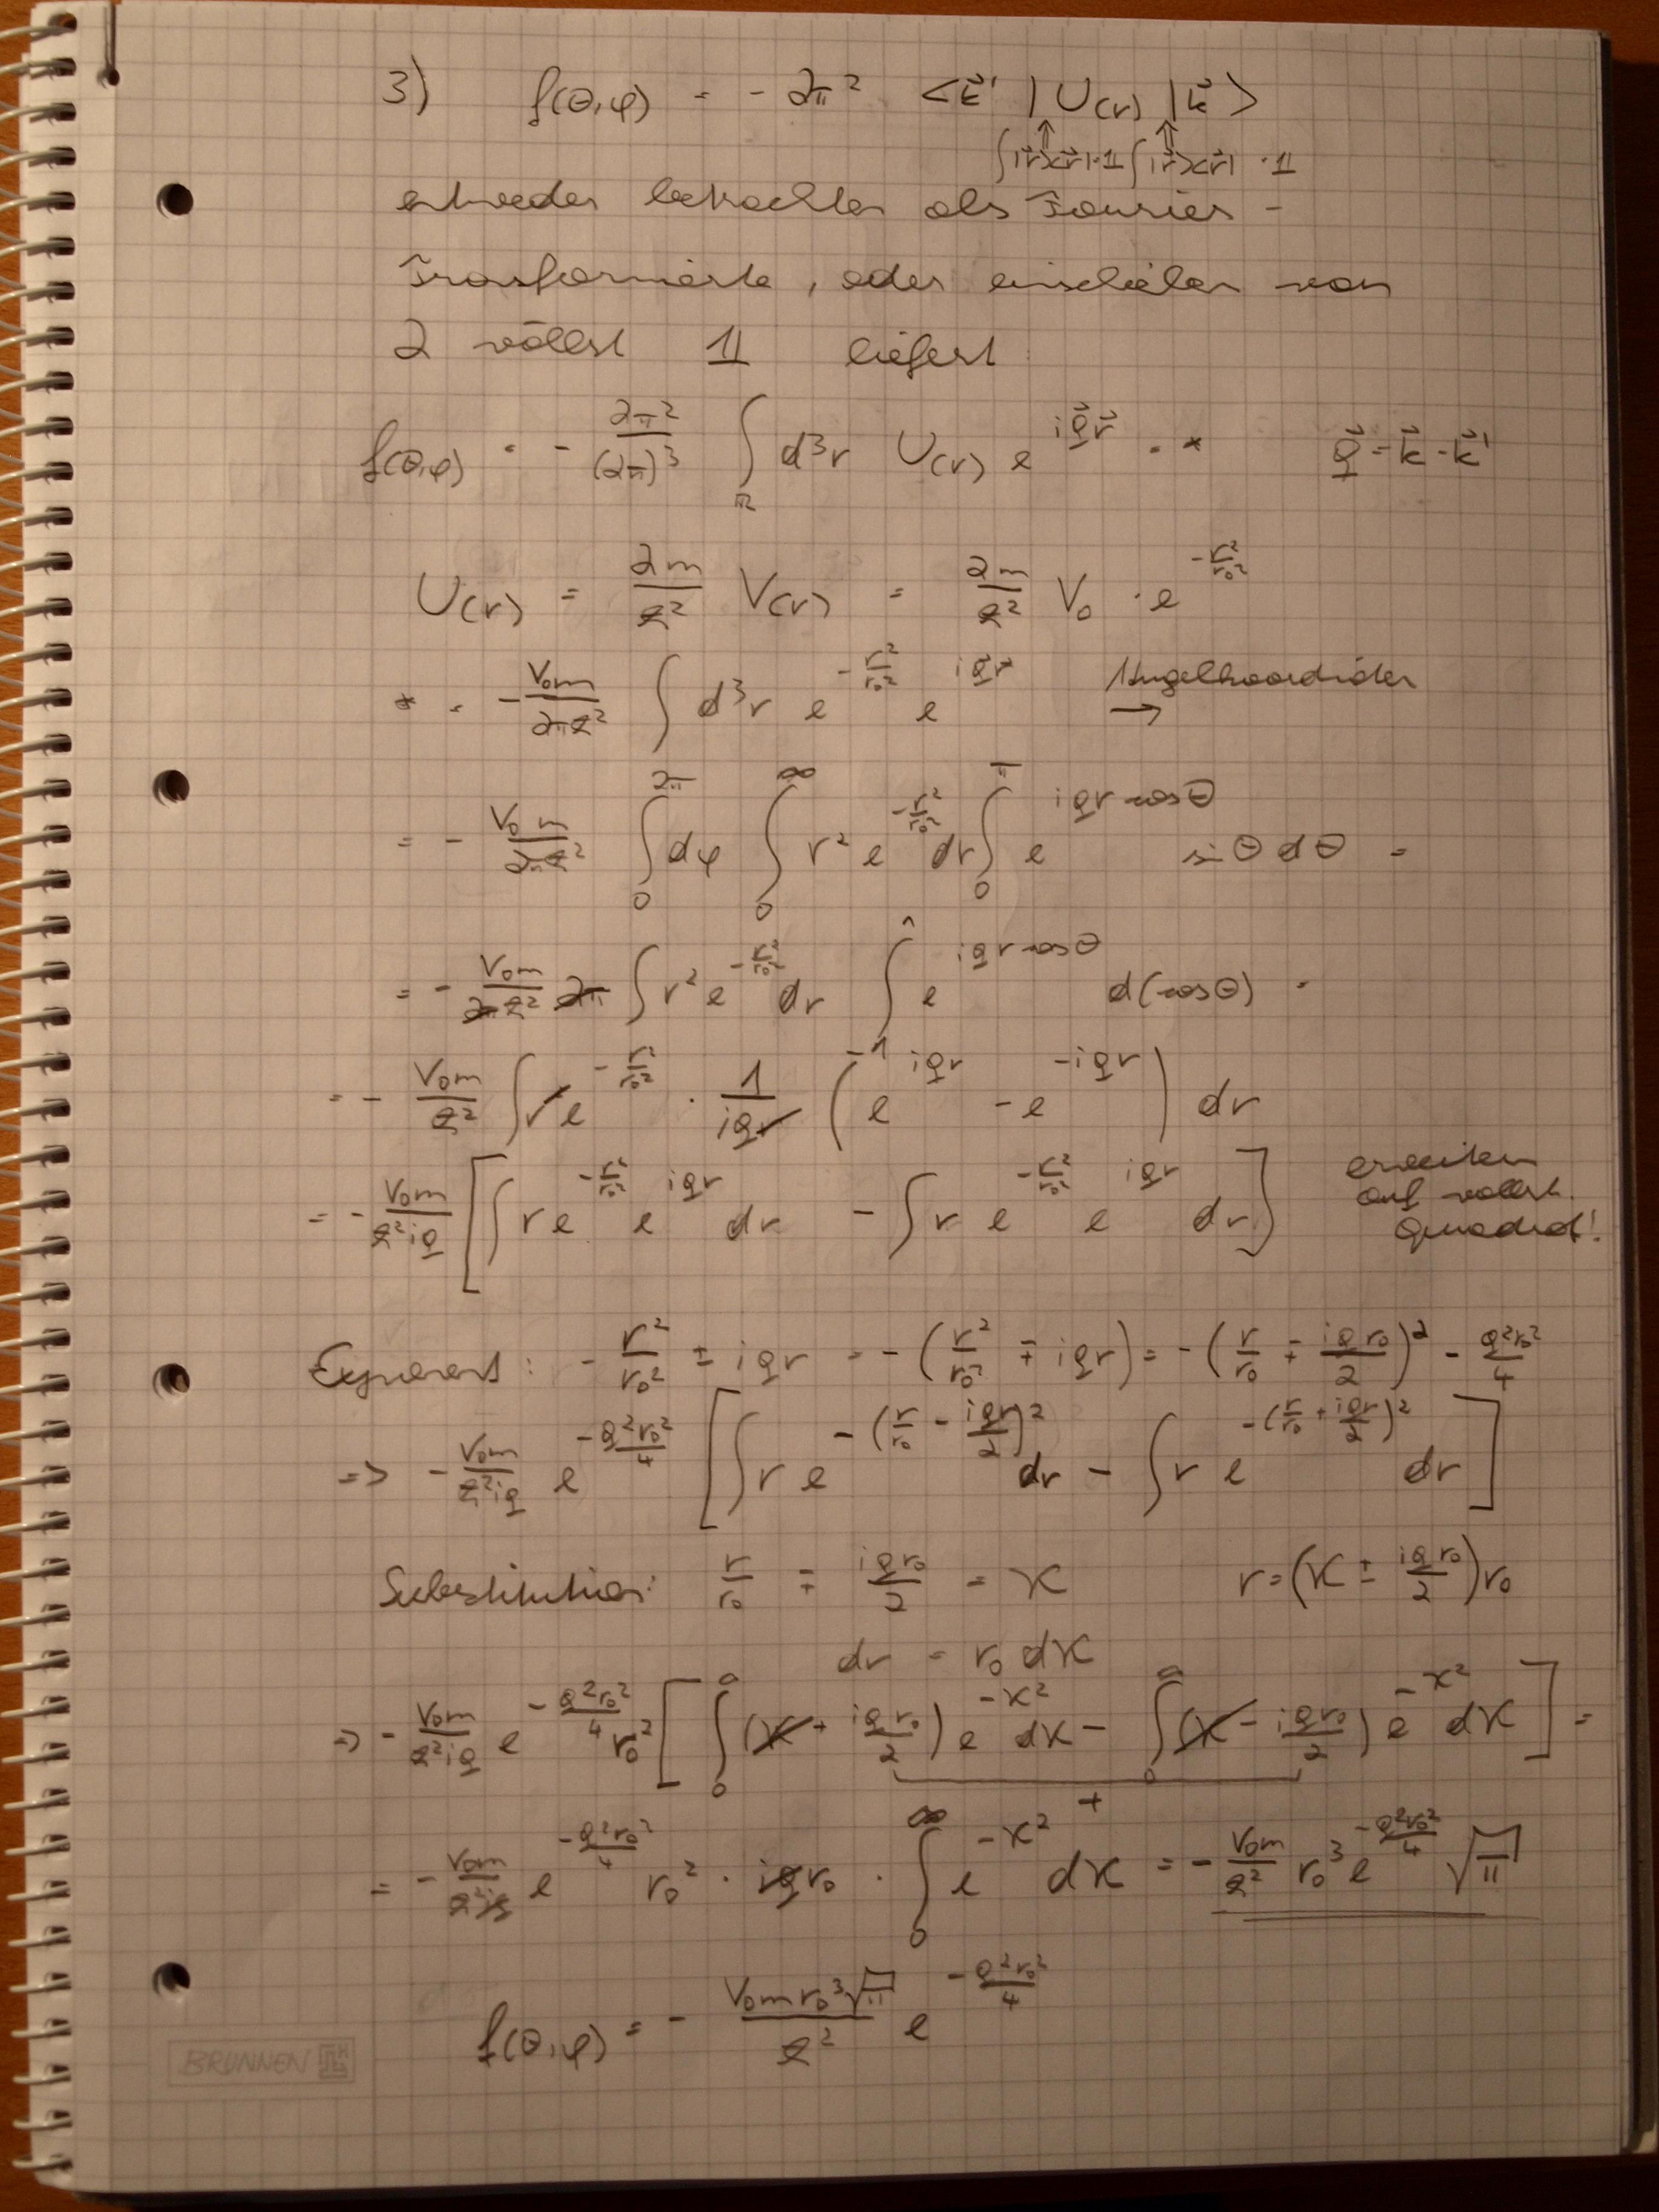 3) f(θ,φ) = - 2π² <k⃗' | U(r) | k⃗ >
∫|r⃗><r⃗|=𝟙 ∫|r⃗><r⃗| = 𝟙
entweder betrachten als Fourier -
Transformierte, oder einschieben von
2 vollst 𝟙 liefert:
f(θ,φ) = - 2π²/(2π)³ ∫ d³r U(r) e^{i q⃗ r⃗} = * q⃗ = k⃗ - k⃗'
U(r) = 2m/ℏ² V(r) = 2m/ℏ² V₀ · e^{-r²/r₀²}
* = - V₀m/2πℏ² ∫ d³r e^{-r²/r₀²} e^{i q⃗ r⃗} Kugelkoordinaten →
= - V₀m/2πℏ² ∫₀^{2π} dφ ∫₀^∞ r² e^{-r²/r₀²} dr ∫₀^π e^{iqr cosθ} sinθ dθ =
= - V₀m/2πℏ² 2π ∫ r² e^{-r²/r₀²} dr ∫₋₁^1 e^{iqr cosθ} d(cosθ) =
= - V₀m/ℏ² ∫ r e^{-r²/r₀²} · 1/iqr ( e^{iqr} - e^{-iqr} ) dr
= - V₀m/ℏ²iq [ ∫ r e^{-r²/r₀²} e^{iqr} dr - ∫ r e^{-r²/r₀²} e^{iqr} dr ] erweitern
auf vollst.
Quadrat!
Exponent: - r²/r₀² ± iqr = - ( r²/r₀² ∓ iqr ) = - ( r/r₀ ∓ iqr₀/2 )² - q²r₀²/4
=> - V₀m/ℏ²iq e^{-q²r₀²/4} [ ∫ r e^{-(r/r₀ - iqr/2)²} dr - ∫ r e^{-(r/r₀ + iqr/2)²} dr ]
Substitution: r/r₀ ∓ iqr₀/2 = x r = ( x ± iqr₀/2 ) r₀
dr = r₀ dx
=> - V₀m/ℏ²iq e^{-q²r₀²/4} r₀² [ ∫₀^∞ ( x + iqr₀/2 ) e^{-x²} dx - ∫₀^∞ ( x - iqr₀/2 ) e^{-x²} dx ] =
+
= - V₀m/ℏ²iq e^{-q²r₀²/4} r₀² · iqr₀ · ∫₀^∞ e^{-x²} dx = - V₀m/ℏ² r₀³ e^{-q²r₀²/4} √π
f(θ,φ) = - V₀mr₀³√π/ℏ² e^{-q²r₀²/4}
BRUNNEN